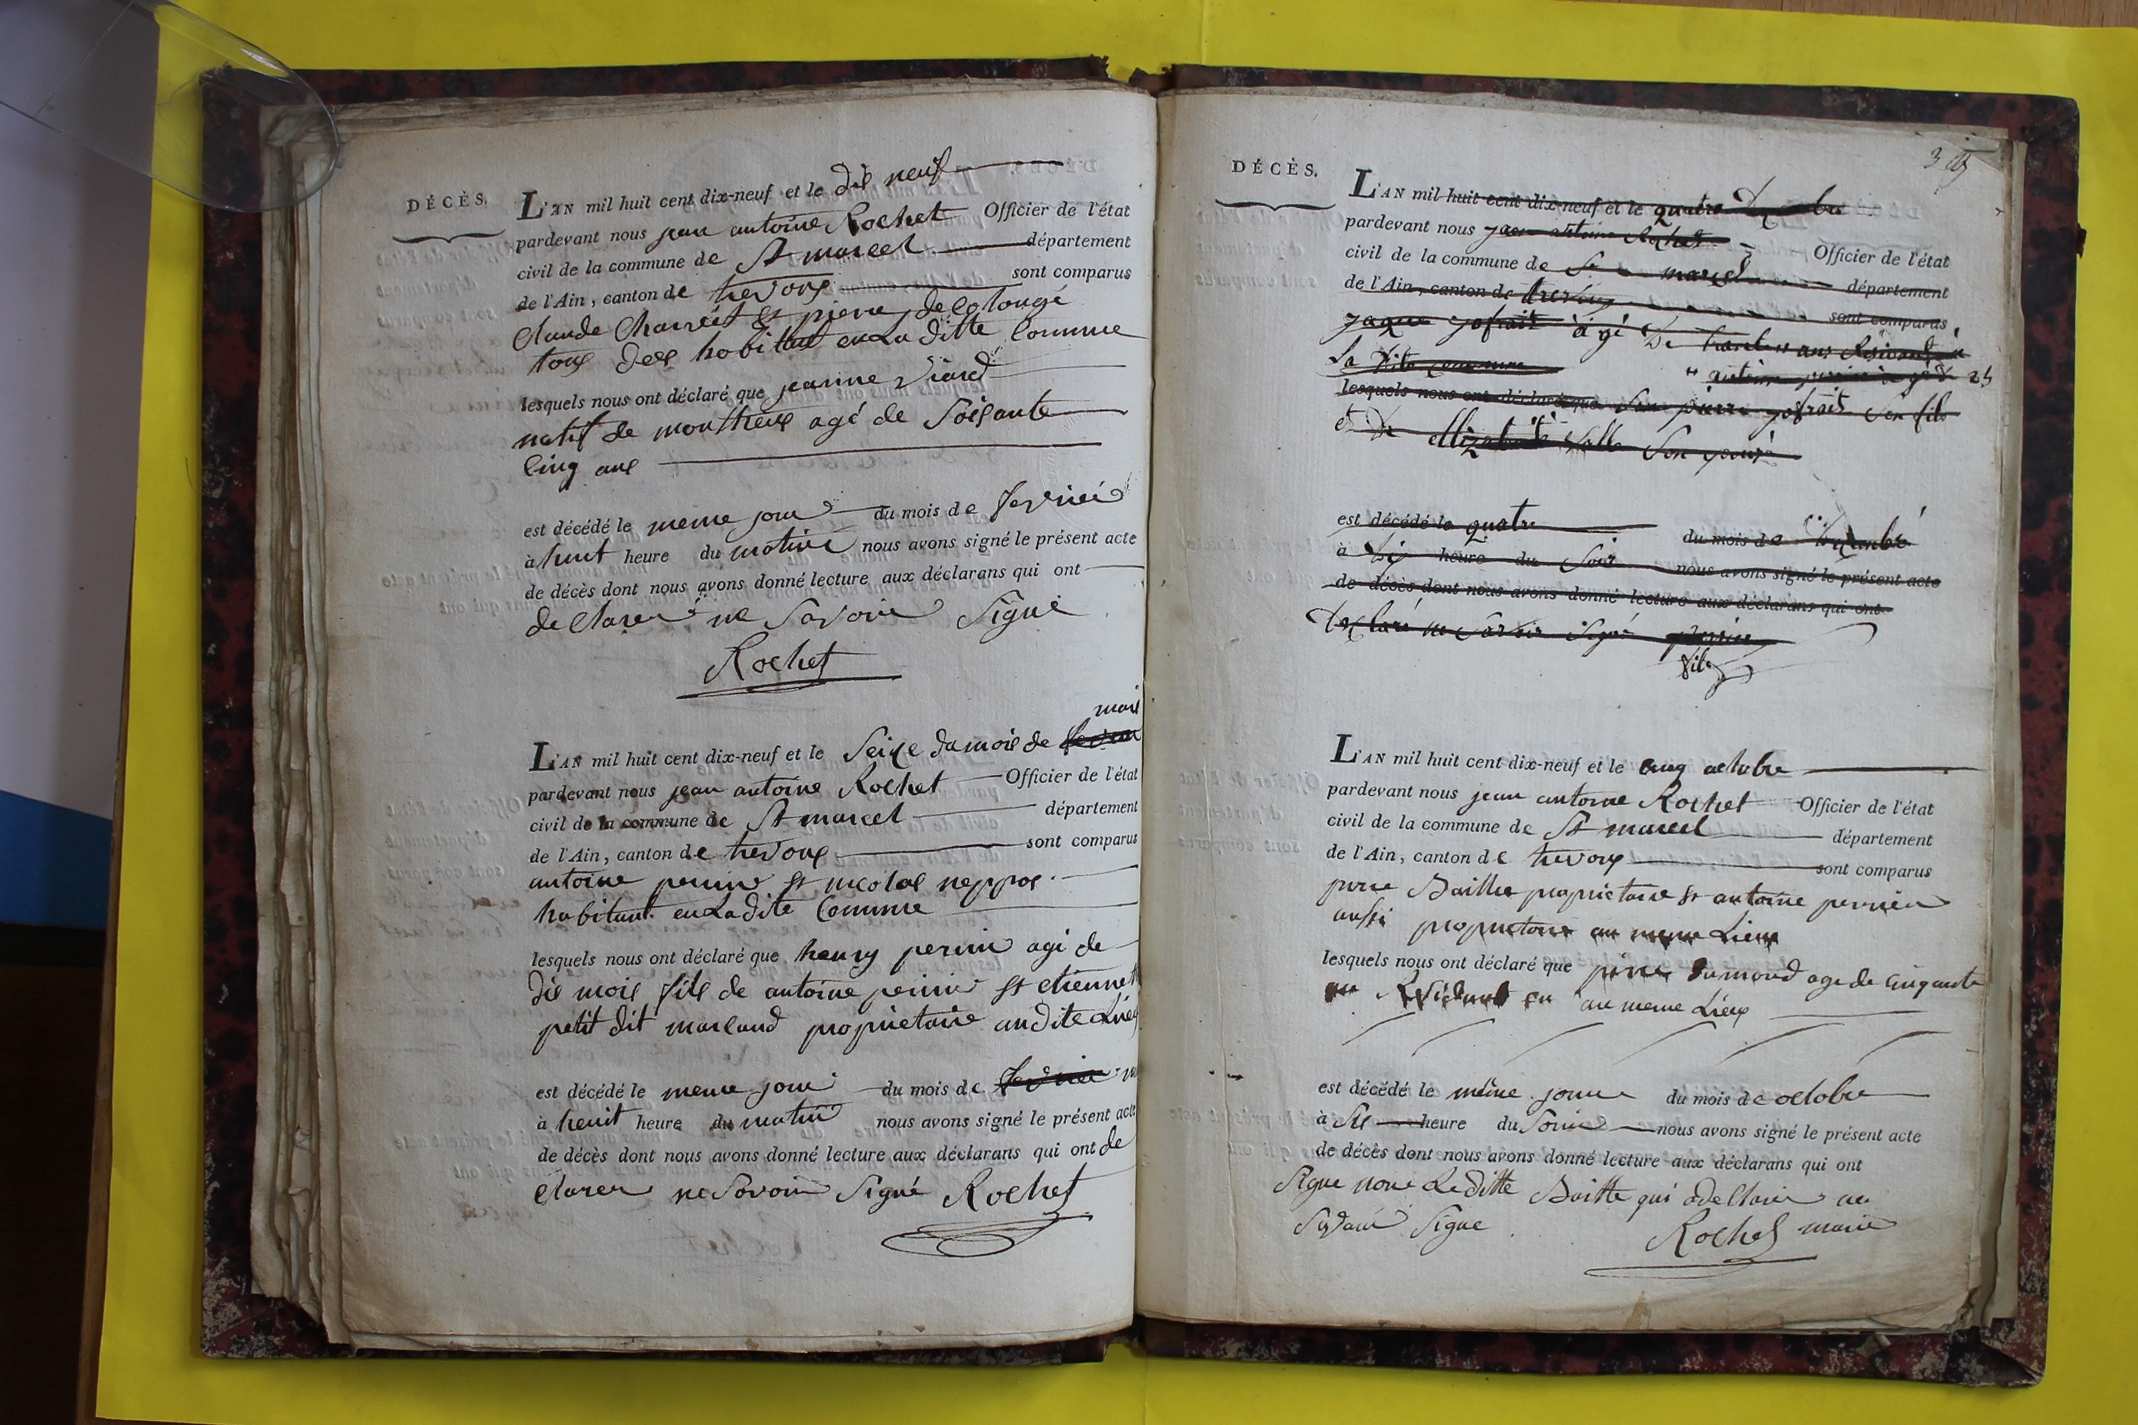 DÉCÈS.
L'AN mil huit cent dix-neuf et le dix neuf
pardevant nous jean antoine Rochet Officier de l'état
civil de la commune de St marcel département
de l'Ain, canton de trevoux sont comparus
Claude Charret et pierre de
tous deux habitant en La ditte Commune
lesquels nous ont déclaré que jeanne Viard
natif de agé de Soisante
Cinq ans
est décédé le meme jour du mois de fevrier
à huit heure du matin nous avons signé le présent acte
de décès dont nous avons donné lecture aux déclarans qui ont
declarer ne Savoir Signé
Rochet
mars
L'AN mil huit cent dix-neuf et le Seize du mois de fevrier
pardevant nous jean antoine Rochet Officier de l'état
civil de la commune de St marcel département
de l'Ain, canton de trevoux sont comparus
antoine perrin et nicolas
habitant en La dite Commune
lesquels nous ont déclaré que henry perrin agé de
dix mois fils de antoine perrin et etiennette
petit dit marland proprietaire au dite Lieu
est décédé le meme jour du mois de fevrier
à heuit heure du matin nous avons signé le présent acte
de décès dont nous avons donné lecture aux déclarans qui ont de
Clarer ne Savoir Signé Rochet
DÉCÈS.
L'AN mil huit cent dix-neuf et le quatre
pardevant nous jean antoine Rochet Officier de l'état
civil de la commune de St marcel département
de l'Ain, canton de trevoux sont comparus
jaque jofrait agé de ans
La dite commune
antoine
lesquels nous ont déclaré que pierre jofrait Son fils
et de Son
est décédé le quatre du mois de
à heure du Soir nous avons signé le présent acte
de décès dont nous avons donné lecture aux déclarans qui ont
declaré ne Savoir Signé
L'AN mil huit cent dix-neuf et le cinq octobre
pardevant nous jean antoine Rochet Officier de l'état
civil de la commune de St marcel département
de l'Ain, canton de trevoux sont comparus
proprietaire et antoine perrier
aussi proprietaire au meme Lieux
lesquels nous ont déclaré que pierre Dumond age de cinquante
au meme Lieux
est décédé le même jour du mois de octobre
à Six heure du Soir nous avons signé le présent acte
de décès dont nous avons donné lecture aux déclarans qui ont
Signe non Le ditte qui a declarer ne
Signe
Rochet maire